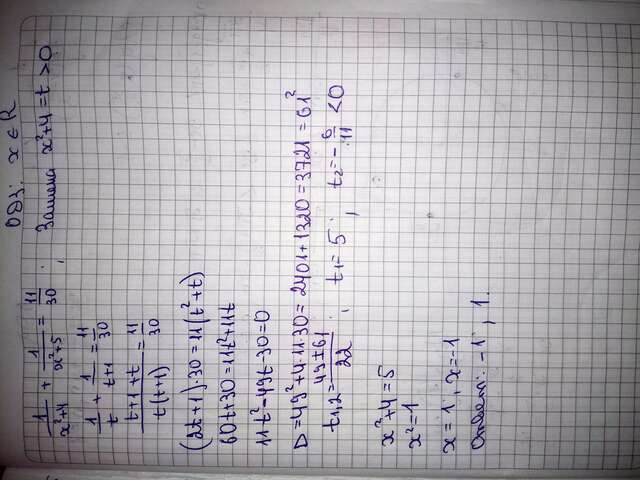 ОДЗ: x ∈ R
1/(x²+4) + 1/(x²+5) = 11/30 ; Замена x²+4=t>0
1/t + 1/(t+1) = 11/30
(t+1+t)/(t(t+1)) = 11/30
(2t+1)·30=11(t²+t)
60t+30=11t²+11t
11t²-49t-30=0
D=49²+4·11·30=2401+1320=3721=61²
t₁,₂=(49±61)/22 ; t₁=5 ; t₂=-6/11 <0
x²+4=5
x²=1
x=1, x=-1
Ответ: -1, 1.